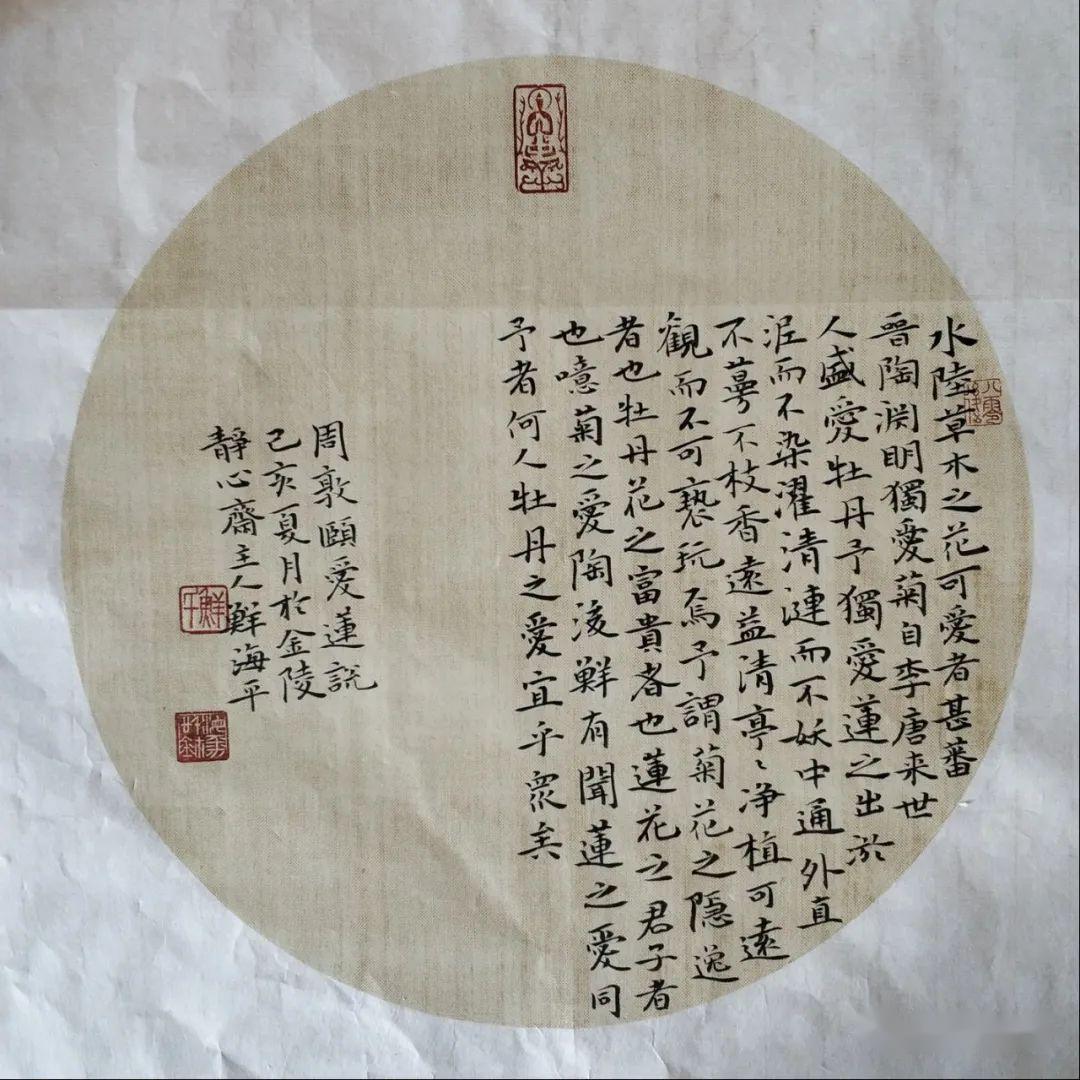 水陸草木之花可愛者甚蕃
晉陶淵明獨愛菊自李唐来世
人盛愛牡丹予獨愛蓮之出於
泥而不染濯清漣而不妖中通外直
不蔓不枝香遠益清亭〻净植可遠
觀而不可褻玩焉予謂菊花之隱逸
者也牡丹花之富貴者也蓮花之君子者
也噫菊之愛陶後鮮有聞蓮之愛同
予者何人牡丹之愛宜乎衆矣
周敦頤愛蓮説
己亥夏月於金陵
靜心齋主人鮮海平